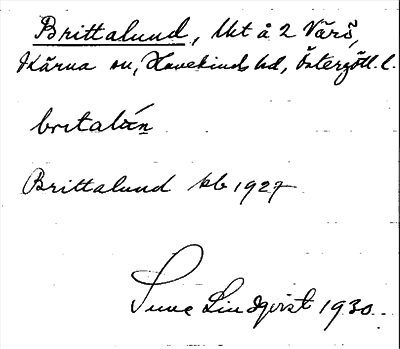 Brittalund, lht å 2 Värö,
Kärna sn, Hanekinds hd, Östergötl. l.
britalún
Brittalund kb 1927
Sune Lindqvist 1930.